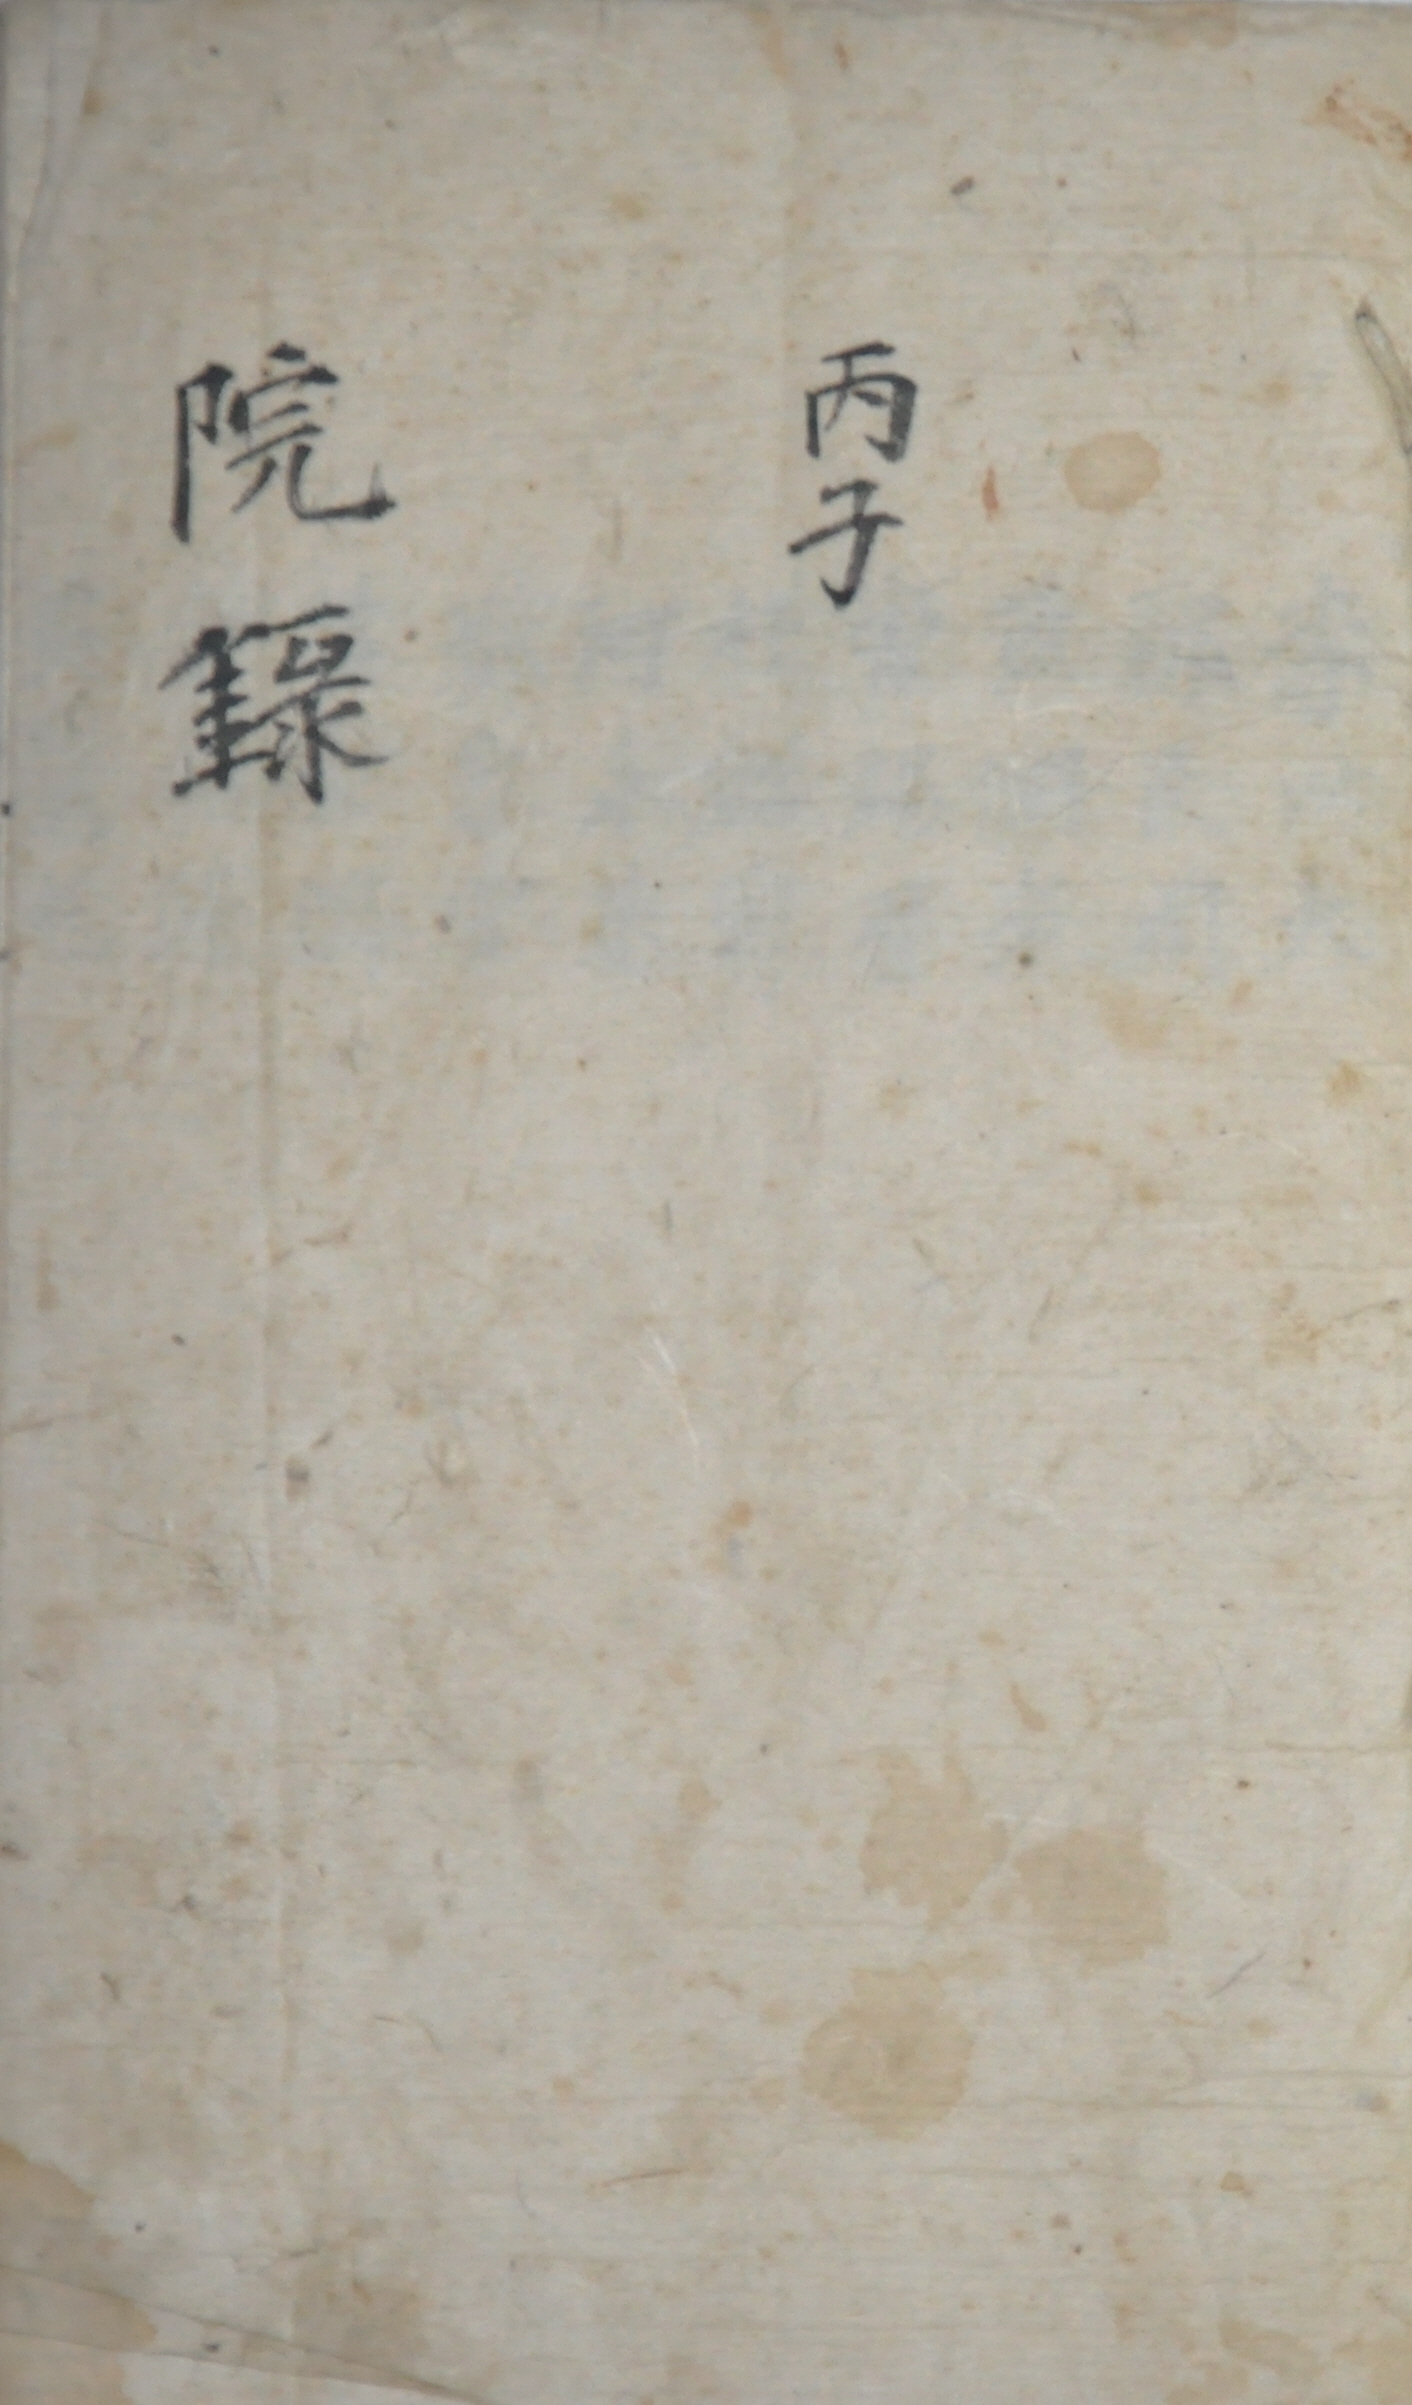 丙子
院錄